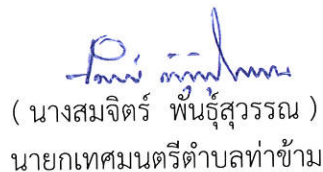 ( นางสมจิตร์ พันธุ์สุวรรณ )
นายกเทศมนตรีตำบลท่าข้าม